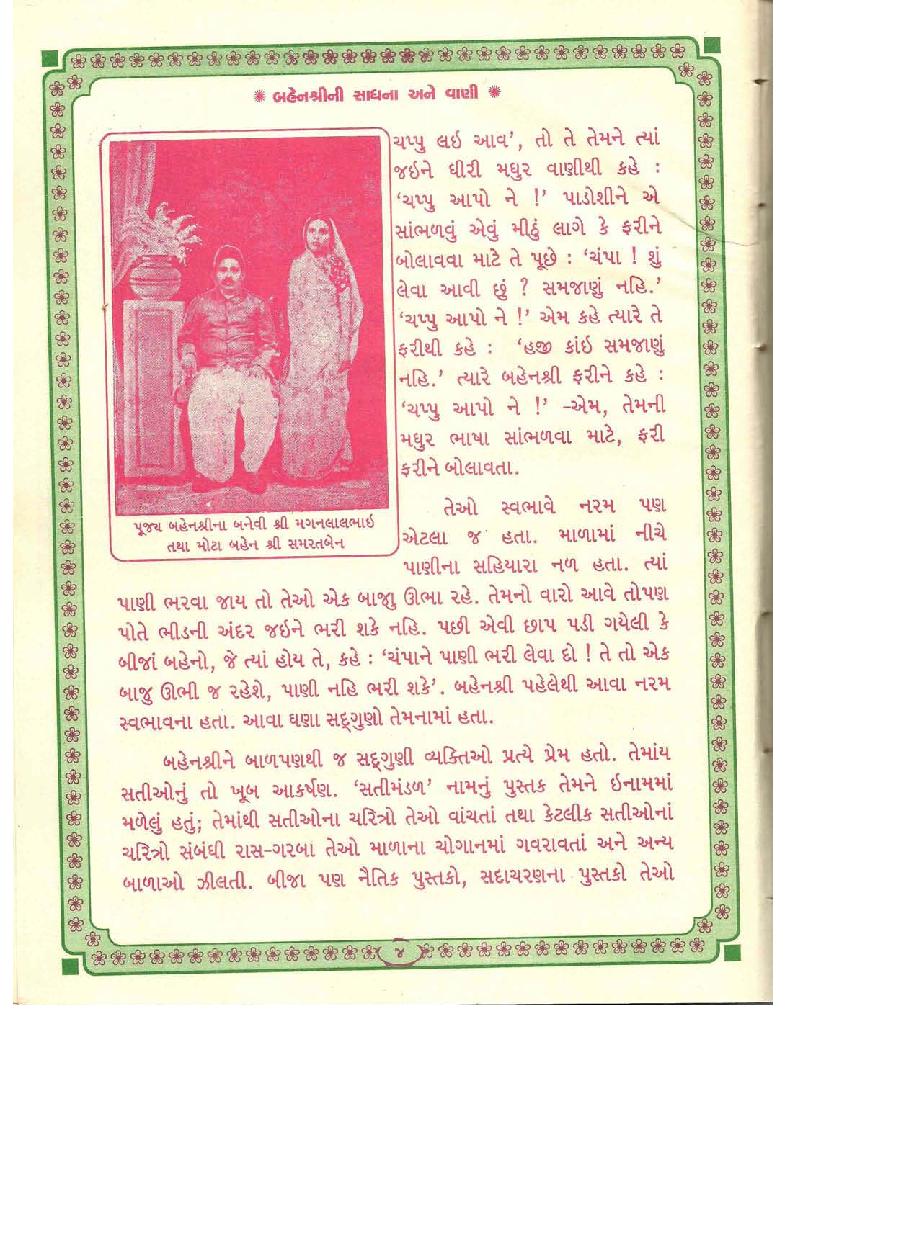 ❋ બહેનશ્રીની સાધના અને વાણી ❋
ચપ્પુ લઇ આવ', તો તે તેમને ત્યાં
જઇને ધીરી મધુર વાણીથી કહે :
‘ચપ્પુ આપો ને !' પાડોશીને એ
સાંભળવું એવું મીઠું લાગે કે ફરીને
બોલાવવા માટે તે પૂછે : ‘ચંપા ! શું
લેવા આવી છું ? સમજાણું નહિ.'
‘ચપ્પુ આપો ને !' એમ કહે ત્યારે તે
ફરીથી કહે : ‘હજી કાંઇ સમજાણું
નહિ.' ત્યારે બહેનશ્રી ફરીને કહે :
‘ચપ્પુ આપો ને !' -એમ, તેમની
મધુર ભાષા સાંભળવા માટે, ફરી
ફરીને બોલાવતા.
પૂજ્ય બહેનશ્રીના બનેવી શ્રી મગનલાલભાઇ
તથા મોટા બહેન શ્રી સમરતબેન
તેઓ સ્વભાવે નરમ પણ
એટલા જ હતા. માળામાં નીચે
પાણીના સહિયારા નળ હતા. ત્યાં
પાણી ભરવા જાય તો તેઓ એક બાજાુ ઊભા રહે. તેમનો વારો આવે તોપણ
પોતે ભીડની અંદર જઇને ભરી શકે નહિ. પછી એવી છાપ પડી ગયેલી કે
બીજાં બહેનો, જે ત્યાં હોય તે, કહે : ‘ચંપાને પાણી ભરી લેવા દો ! તે તો એક
બાજુ ઊભી જ રહેશે, પાણી નહિ ભરી શકે'. બહેનશ્રી પહેલેથી આવા નરમ
સ્વભાવના હતા. આવા ઘણા સદ્‌ગુણો તેમનામાં હતા.
બહેનશ્રીને બાળપણથી જ સદ્‌ગુણી વ્યક્તિઓ પ્રત્યે પ્રેમ હતો. તેમાંય
સતીઓનું તો ખૂબ આકર્ષણ. ‘સતીમંડળ' નામનું પુસ્તક તેમને ઇનામમાં
મળેલું હતું; તેમાંથી સતીઓના ચરિત્રો તેઓ વાંચતાં તથા કેટલીક સતીઓનાં
ચરિત્રો સંબંધી રાસ-ગરબા તેઓ માળાના ચોગાનમાં ગવરાવતાં અને અન્ય
બાળાઓ ઝીલતી. બીજા પણ નૈતિક પુસ્તકો, સદાચરણના પુસ્તકો તેઓ
૪